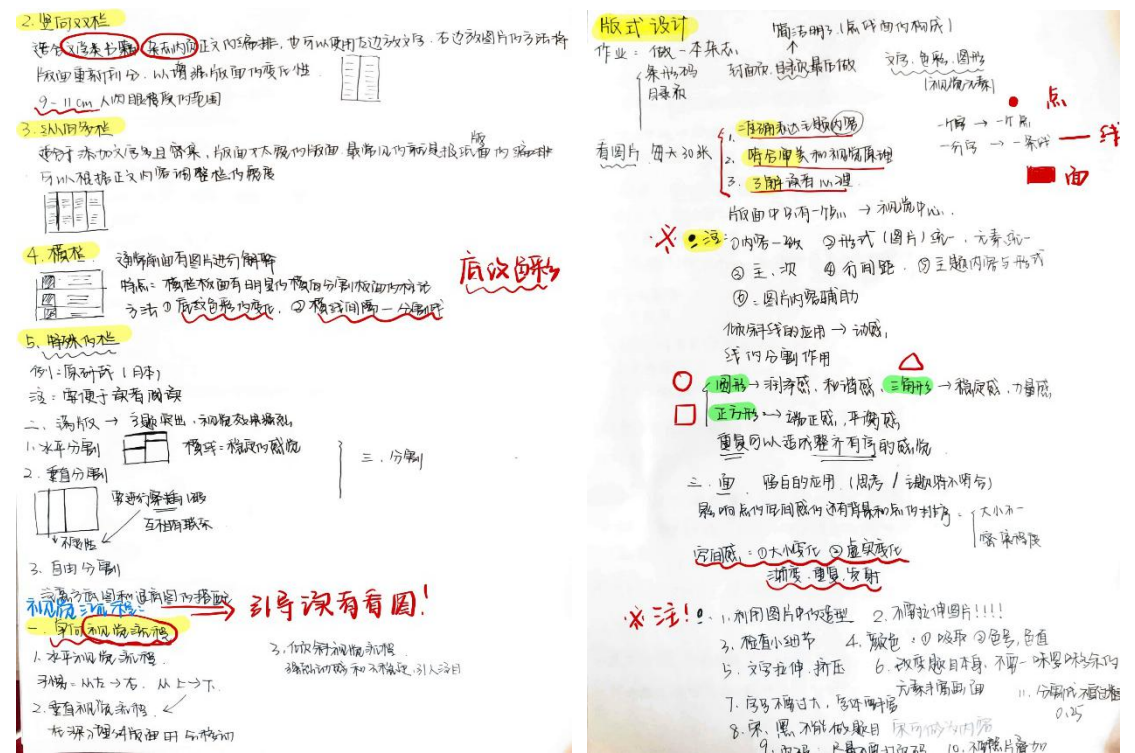 2. 竖向双栏
适合文学类书籍、杂志内页正文的编排，也可以使用左边放文字，右边放图片的方法将
版面重新利分，以增强版面的变化性
9-11cm 人肉眼接受的范围
3. 纵向多栏
适合于添加文字多且密集，版面才大般的版面 最常见的就是报纸版面的编排
可以根据正文内容调整栏的宽度
4. 横栏
通常前面有图片进行解释
特点：横栏版面有明显的横向分割版面的标志
方法①底纹色彩的变化，②横线间隔—分割线
底纹色彩
5. 特殊的栏
例：原研哉（日本）
注：要便于读者阅读
二、满版→主题突出，视觉效果强烈
1. 水平分割
横线=稳定的感觉
2. 垂直分割
要进行穿插
互相有联系
不稳定
三、分割
3. 自由分割
注意方底图和退底图的搭配
视觉流程：
引导读者看图！
一、单向视觉流程
1. 水平视觉流程
习惯=从左→右，从上→下
2. 垂直视觉流程
3. 倾斜视觉流程
强烈动感和不稳定，引人注目
版式设计
简洁明了（点线面的构成）
作业：做一本杂志
条形码
目录页
封面页、目录页最后做
文字、色彩、图形
（视觉元素）
点
一个字→一个点
一行字→一条线
线
面
看图片 每天30张
1. 准确表达主题内容
2. 符合审美和视觉原理
3. 了解读者心理
版面中只有一个点→视觉中心
※注：①内容一致 ②形式（图片）统一、元素统一
③主、次 ④行间距 ⑤主题内容与形式
⑥=图片内容辅助
倾斜线的应用→动感
线的分割作用
圆形→润泽感、和谐感、三角形→稳定感、力量感
正方形→端正感，平衡感
重复可以造成整齐有序的感觉
三、面 留白的应用（思考/主题符不符合）
影响点的空间感的还有背景和点的排序=
大小不一
密集程度
空间感=①大小变化 ②虚实变化
渐变、重复、发射
※注！：1. 利用图片中的造型 2. 不要拉伸图片！！！！
3. 检查小细节 4. 颜色：①吸取 ②色号，色值
5. 文字拉伸、挤压 6. 改变题目本身，不要一味要多余的
元素丰富画面
7. 字号不要过大，字体丰富
11. 分割线不要过粗
0.25
8. 宋、黑不能做题目 宋可做为内容
9. 页码：尽量不要打页码 10. 不要照片叠加